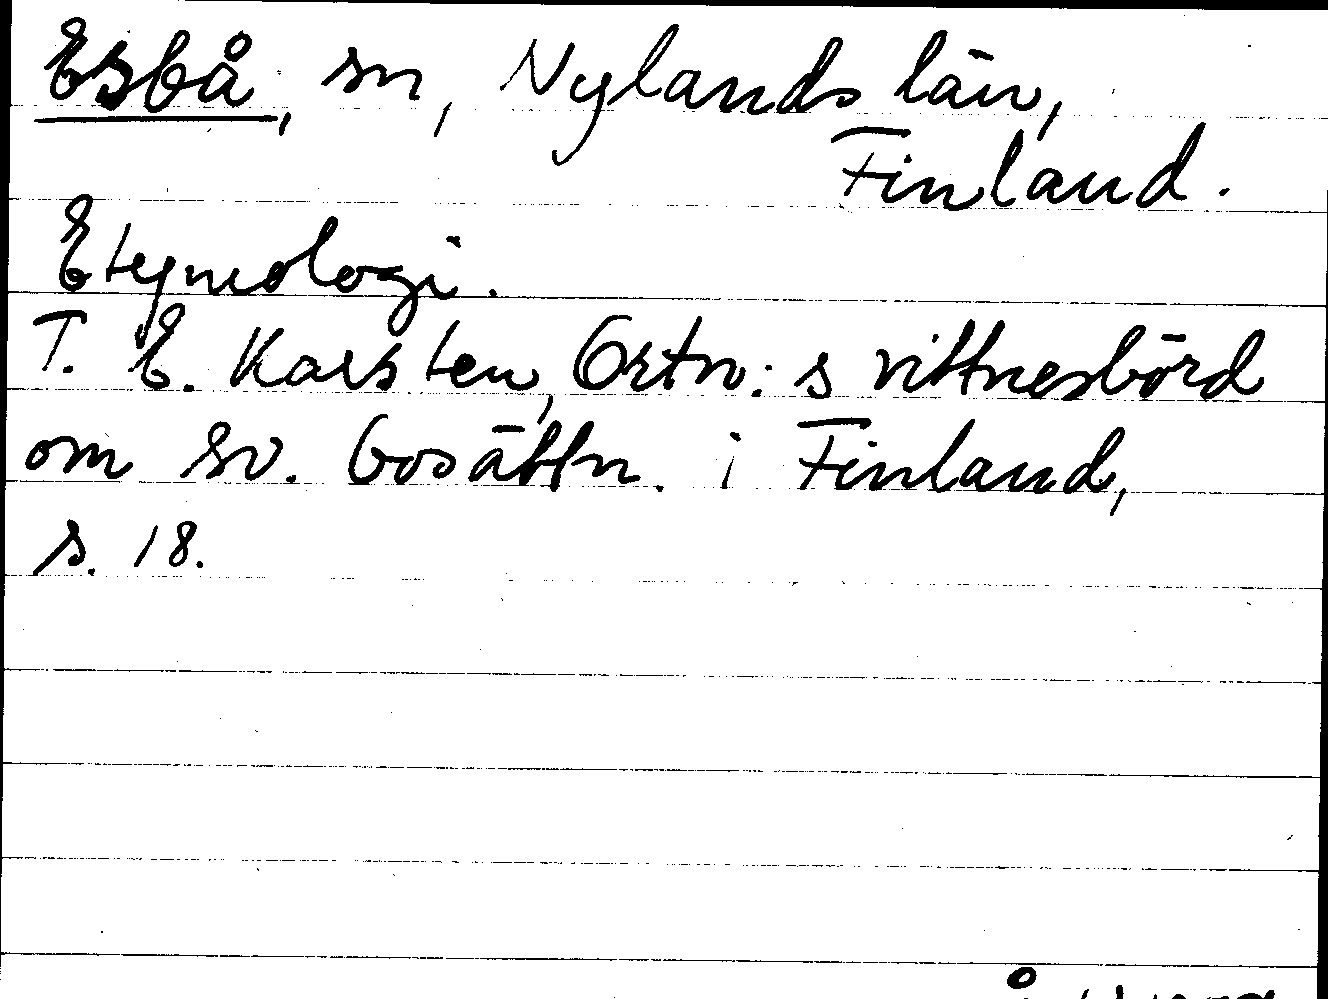 Esbå, sn, Nylands län,
Finland.
Etymologi.
T. E. Karsten, Ortn:s vittnesbörd
om sv. bosättn. i Finland,
s. 18.